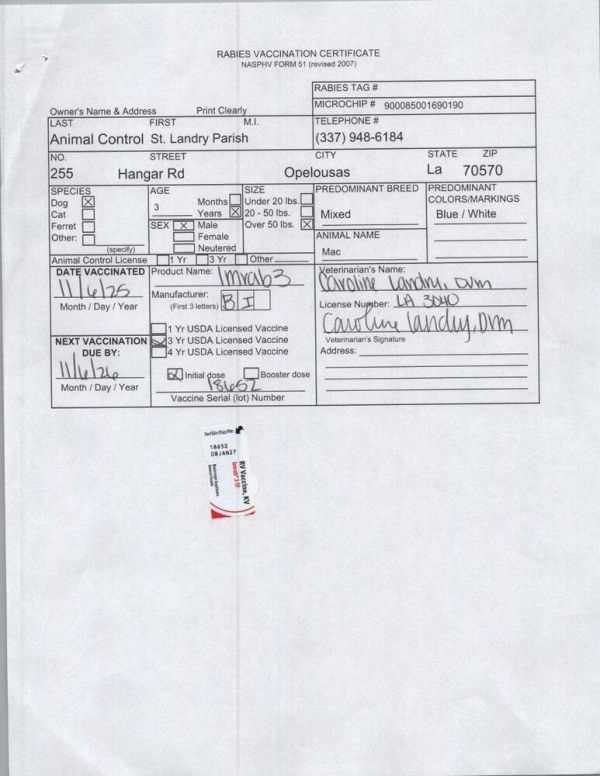 RABIES VACCINATION CERTIFICATE
NASPHV FORM 51 (revised 2007)
RABIES TAG #
MICROCHIP # 900085001690190
Owner's Name & Address Print Clearly
LAST FIRST M.I.
TELEPHONE #
Animal Control St. Landry Parish
(337) 948-6184
NO. STREET CITY STATE ZIP
255 Hangar Rd Opelousas La 70570
SPECIES
Dog X
Cat
Ferret
Other:
(specify)
AGE
3
Months
Years X
SEX X Male
Female
Neutered
SIZE
Under 20 lbs.
20 - 50 lbs.
Over 50 lbs. X
PREDOMINANT BREED
Mixed
ANIMAL NAME
Mac
PREDOMINANT
COLORS/MARKINGS
Blue / White
Animal Control License 1 Yr 3 Yr Other
DATE VACCINATED
11/6/25
Month / Day / Year
NEXT VACCINATION
DUE BY:
11/6/26
Month / Day / Year
Product Name: Imrab3
Manufacturer: BI
(First 3 letters)
1 Yr USDA Licensed Vaccine
3 Yr USDA Licensed Vaccine
4 Yr USDA Licensed Vaccine
X Initial dose Booster dose
18652
Vaccine Serial (lot) Number
Veterinarian's Name:
Caroline Landry, DVM
License Number: LA 3040
Caroline Landry, DVM
Veterinarian's Signature
Address:
18652
08JAN27
RV Vaccine, KV